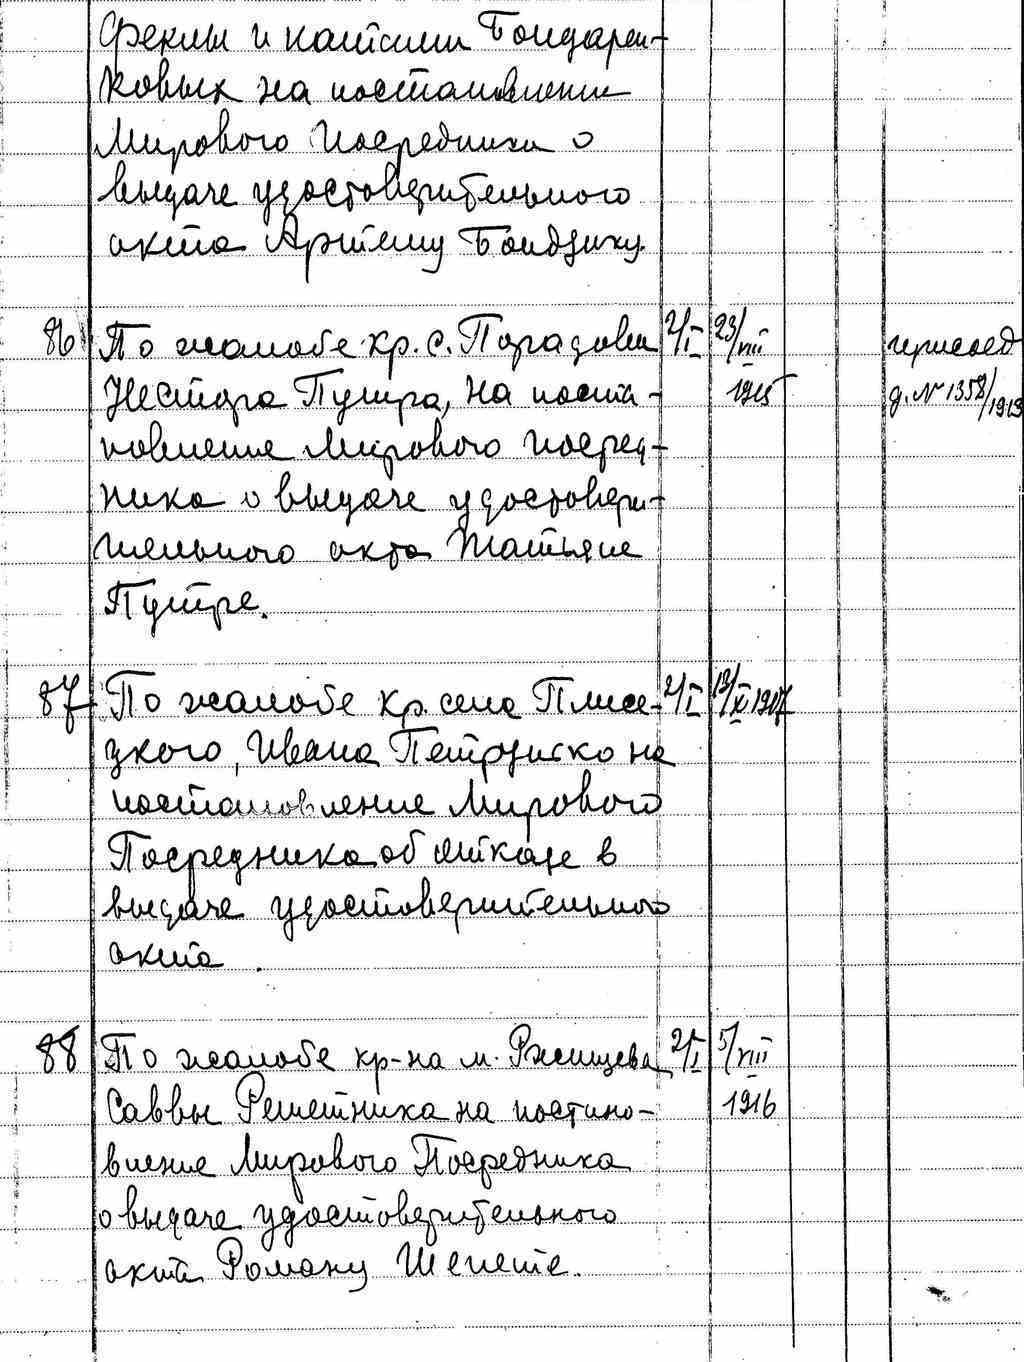 Феклы и наталии Бондарен-
ковых на постановление
Мирового Посредника о
выдаче удостоверительного
акта Артему Бондзику.
86 По жалобе кр. с. Парадовки 2/I 23/VIII
Нестора Путра, на поста- 1915
новление Мирового посред-
ника о выдаче удостовери-
тельного акта Татьяне
Путре.
присоед
д. № 1358/1913
87 По жалобе кр. села Плисе- 2/I 13/XI 1907
цкого, Ивана Петруско на
постановление Мирового
Посредника об отказе в
выдаче удостоверительного
акта.
88 По жалобе кр-на м. Ржищева 2/I 5/VIII
Саввы Решетника на постано- 1916
вление Мирового Посредника
о выдаче удостоверительного
акта Роману Шепете.